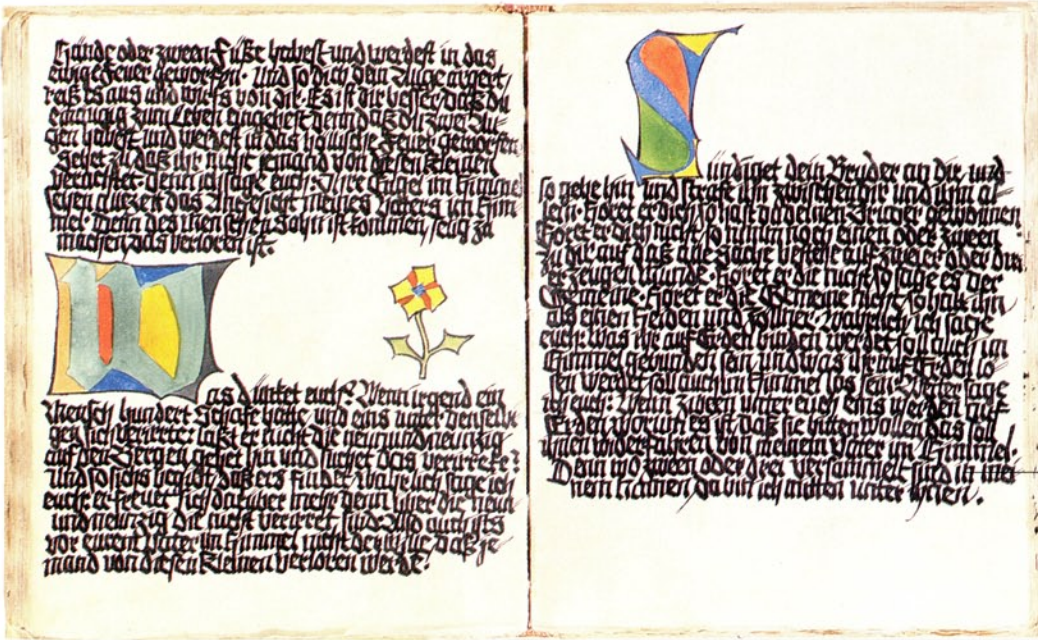 Hände oder zween Füße habest und werdest in das
ewige Feuer geworfen. Und so dich dein Auge ärgert,
reiß es aus und wirfs von dir. Es ist dir besser daß du
einäugig zum Leben eingehest denn daß du zwei Au-
gen habest und werdest in das höllische Feuer geworfen.
Sehet zu daß ihr nicht jemand von diesen Kleinen
verachtet. denn ich sage euch: Ihre Engel im Himmel
sehen allezeit das Angesicht meines Vaters im Him-
mel. Denn des menschen Sohn ist kommen, selig zu
machen das verloren ist.
Was dünket euch? Wenn irgend ein
Mensch hundert Schafe hätte und eins unter densel-
gen sich verirrete: läßt er nicht die neunundneunzig
auf den Bergen, gehet hin und suchet das verirrete?
und so sichs begibt, daß ers findet, wahrlich ich sage
euch er freuet sich darüber mehr denn über die neun
undneunzig die nicht verirret sind. Also auch ists
vor eurem Vater im Himmel nicht der Wille, daß je-
mand von diesen Kleinen verloren werde.
Sündiget dein Bruder an dir und
so gehe hin und strafe ihn zwischen dir und ihm al-
lein. Höret er dich so hast du deinen Bruder gewonnen
Höret er dich nicht so nimm noch einen oder zween
zu dir auf daß alle Sache bestehe auf zweier oder drei-
er Zeugen Munde. Höret er die nicht so sage es der
Gemeine. Höret er die Gemeine nicht, so halt ihn
als einen Heiden und Zöllner. Wahrlich ich sage
euch: Was ihr auf Erden binden werdet soll auch im
Himmel gebunden sein, und was ihr auf Erden lö-
sen werdet soll auch im Himmel los sein. Weiter sage
ich euch: Wenn zween unter euch eins werden auf
Erden, worum es ist daß sie bitten wollen das soll
ihnen widerfahren von meinem Vater im Himmel.
Denn wo zween oder drei versammelt sind in mei-
nem Namen da bin ich mitten unter ihnen.